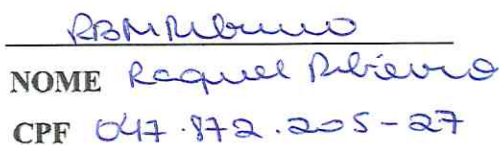 RBMRibeiro
NOME Raquel Ribeiro
CPF 047.872.205-27